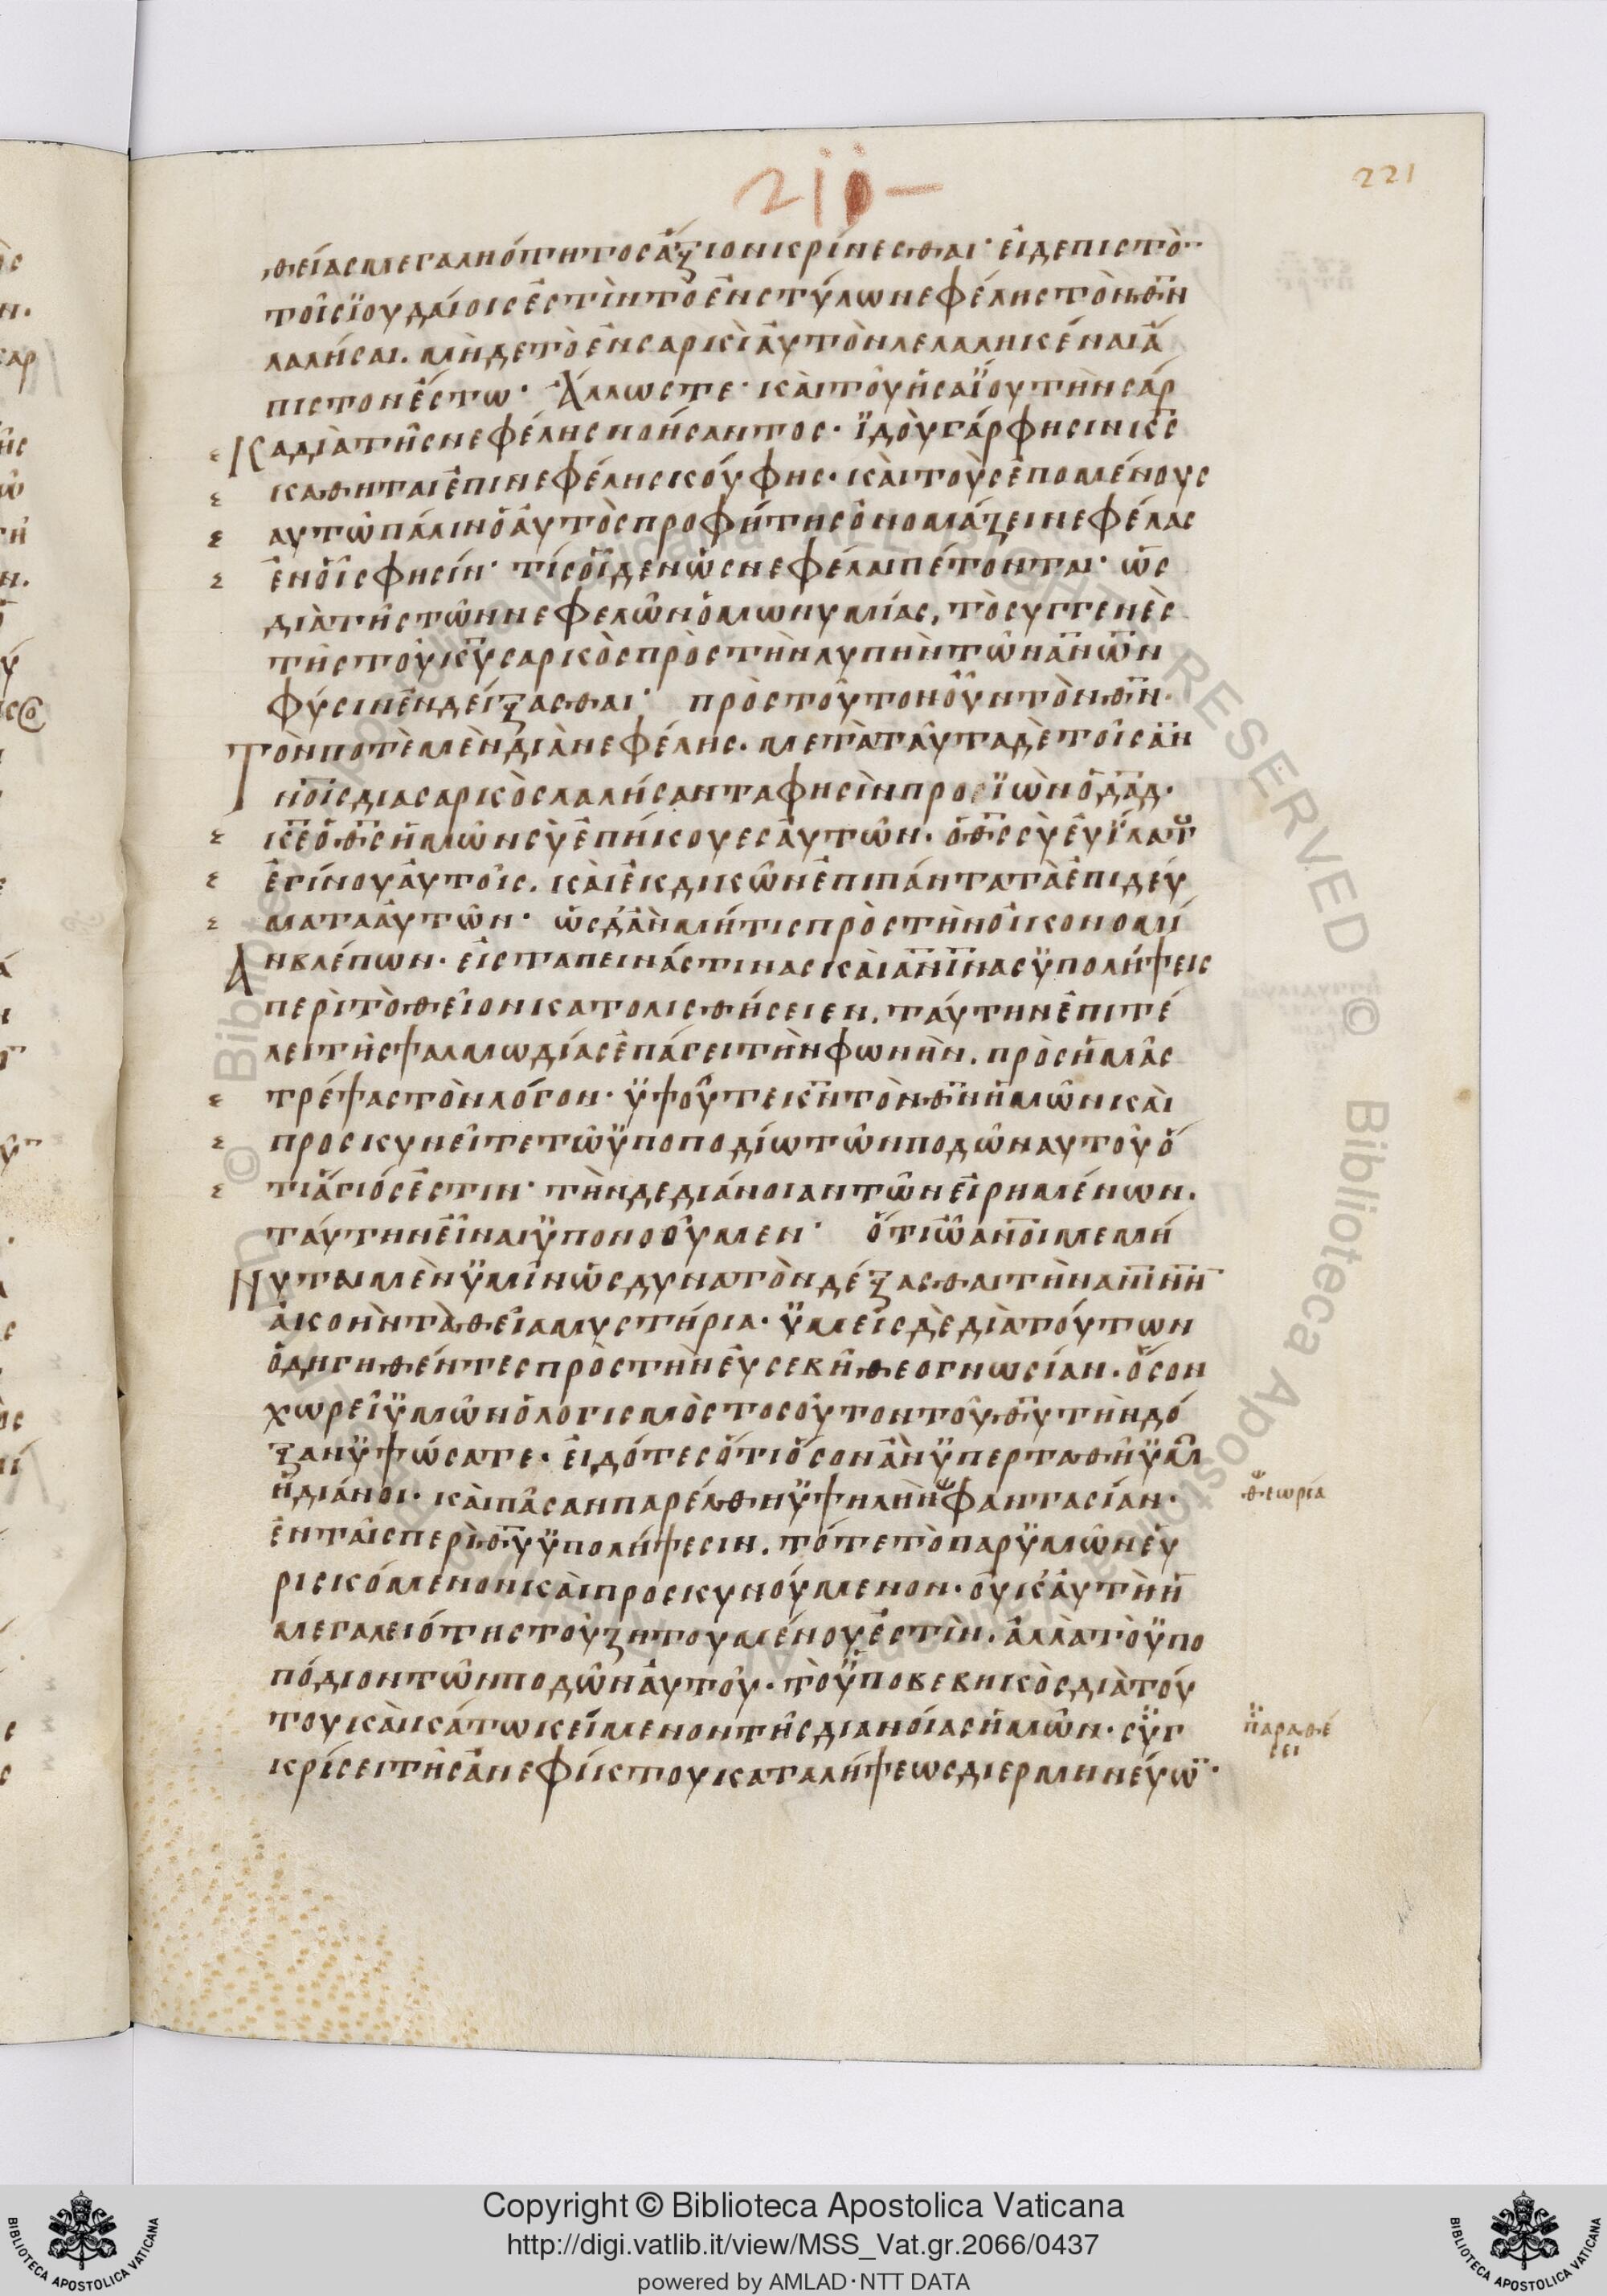 211-
221
θείας μεγαλιότητος ἄξιον κρίνεσθαι· εἰ δε πιστὸ
τοῖς ϊουδαίοις ἐστὶν τὸ ἐν στύλω νεφέλης τὸν θ̅ν̅
λαλήσαι. μὴ δε τὸ ἐν σαρκὶ ἀυτὸν λελαληκέναι ἄ
πιστον ἔστω· Ἄλλωστε· κὰι τοῦ ἡσαΐου τὴν σάρ
Κα διὰ τῆς νεφέλης νοήσαντος· ϊδοὺ γάρ φησιν κ̅ς̅
καθηται ἐπι νεφέλης κούφης· κὰι τοὺς ἑπομένους
αυτῶ πάλιν ὁ ἀυτὸς προφήτης ὀνομάζει νεφέλας
ἐν οἷς φησίν· τίς οἶδεν ὡς νεφέλαι πέτονται· ὡς
διὰ τῆς τῶν νεφελῶν ὁμωνυμίας, τὸ συγγενὲς
τῆς τοῦ κ̅υ̅ σαρκὸς πρὸς τὴν λυπὴν τῶν α̅ν̅ω̅ν̅
φύσιν ἐνδείξασθαι· πρὸς τοῦτον οὖν τὸν θ̅ν̅·
Τὸν ποτὲ μὲν διὰ νεφέλης. μετὰ ταῦτα δὲ τοῖς α̅ν̅
ν̅ο̅ι̅ς̅ δια σαρκὸς λαλήσαντα φησὶν προσϊὼν ὁ δ̅α̅δ̅·
κ̅ε̅ ὁ θ̅ς̅ ἡμῶν σὺ ἐπήκουες ἀυτῶν· ὁ θ̅ς̅ σὺ ἐυΐλατ
ἐγίνου ἀυτοῖς. κὰι ἐκδικῶν ἐπι πάντα τὰ ἐπιδεύ
ματα ἀυτῶν· ὡς δ' ἂν μήτις πρὸς τὴν οἰκονομί
Αν βλέπων· εἰς ταπεινάς τινας κὰι α̅ν̅ι̅ν̅ας ϋπολήψεις
περὶ τὸ θεῖον κατολισθήσειεν. ταύτην ἐπι τέ
λει τῆς ψαλμωδίας ἐπάγει τὴν φωνὴν. πρὸς ἡμᾶς
τρέψας τὸν λόγον· ϋψοῦτε κ̅ν̅ τὸν θ̅ν̅ ἡμῶν κὰι
προσκυνεῖτε τῶ ϋποποδίω τῶν ποδῶν αυτοῦ ὅ
τι ἅγιός ἐστιν· τὴν δε διάνοιαν τῶν εἰρημένων.
ταύτην εἶναι ϋπονοοῦμεν· ὅτι ὦ α̅ν̅ο̅ι̅ μεμή
Νυται μὲν ϋμῖν ὡς δυνατὸν δέξασθαι τὴν α̅ν̅ι̅ν̅η̅ν̅
ἀκοὴν τὰ θεῖα μυστήρια· ϋμεῖς δὲ διὰ τούτων
ὁδηγηθέντες πρὸς τὴν ἐυσεβῆ θεογνωσίαν· ὅσον
χωρεῖ ϋμῶν ὁ λογισμὸς τοσοῦτον τοῦ θ̅υ̅ τὴν δό
ξαν ϋψώσατε· ἐιδότες ὅτι ὅσον ἂν ϋπερταθῆ ϋμ
ἡ διάνοι· κὰι πᾶσαν παρέλθη ϋψηλὴν φαντασίαν·
ἐν ταῖς περὶ θ̅υ̅ ϋπολήψεσιν. τότε τὸ παρ ϋμῶν εὑ
ρισκόμενον κὰι προσκυνούμενον· οὐκ ἀυτὴ ἡ
μεγαλειότης τοῦ ζητουμένου ἐστὶν. ἀλλὰ τὸ ϋπο
πόδιον τῶν ποδῶν ἀυτοῦ· τὸ ϋποβεβηκὸς διὰ τού
του κὰι κάτω κείμενον τῆς διανοίας ἡμῶν· συγ
κρίσει τῆς ἀνεφίκτου καταλήψεως διερμηνεύω·
θεωρία
παραθέ
σει
Copyright © Biblioteca Apostolica Vaticana
http://digi.vatlib.it/view/MSS_Vat.gr.2066/0437
powered by AMLAD·NTT DATA